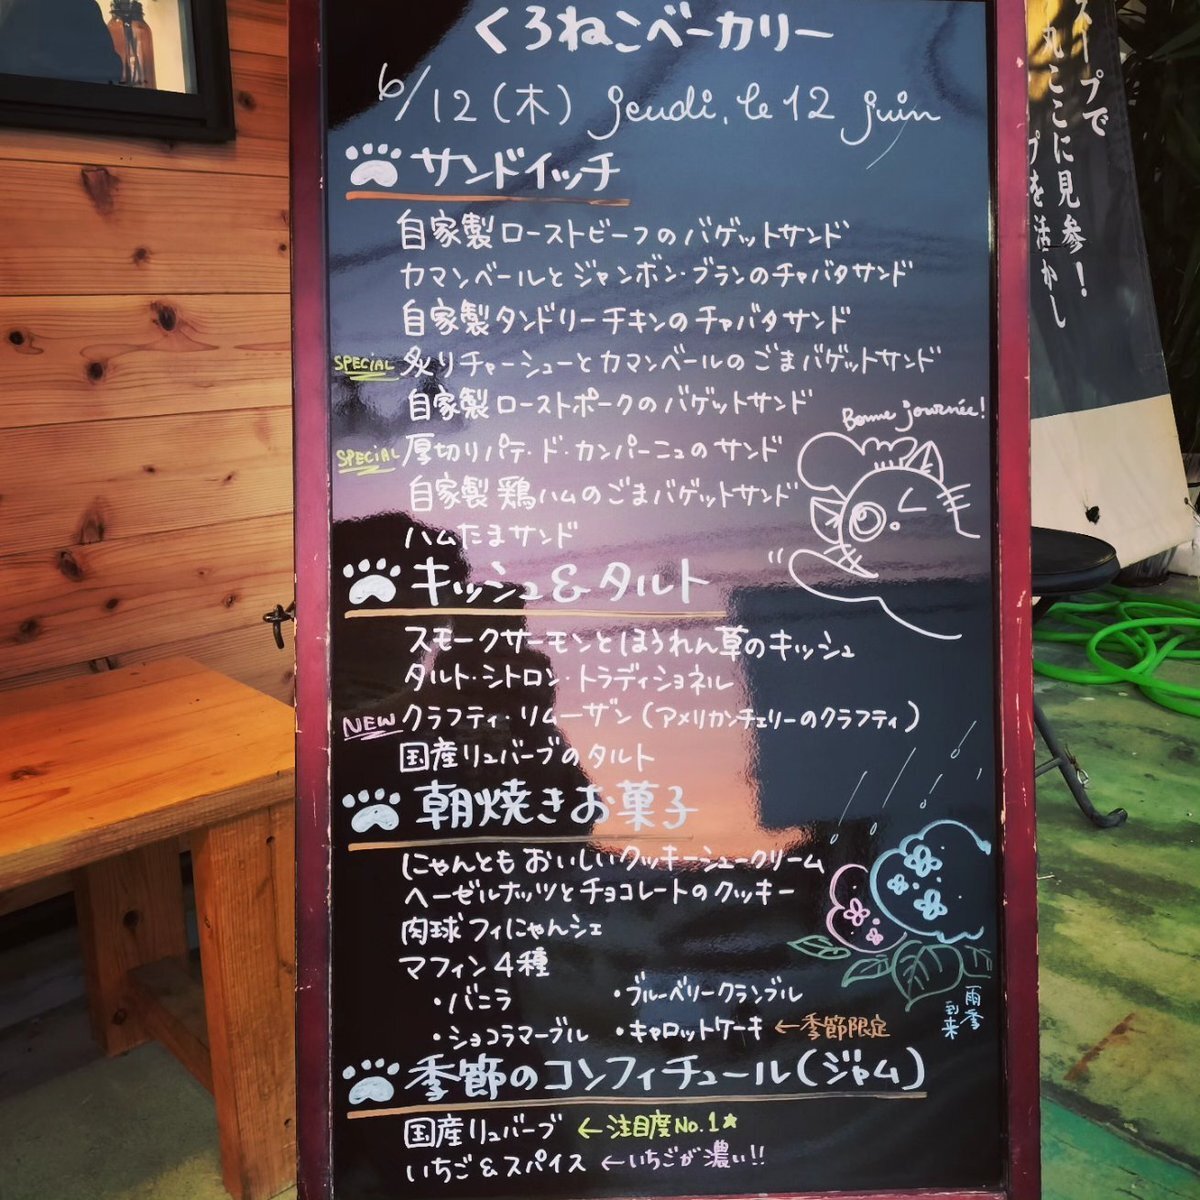 くろねこベーカリー
6/12(木) jeudi, le 12 juin
サンドイッチ
自家製ローストビーフのバゲットサンド
カマンベールとジャンボン・ブランのチャバタサンド
自家製タンドリーチキンのチャバタサンド
SPECIAL 炙りチャーシューとカマンベールのごまバゲットサンド
自家製ローストポークのバゲットサンド
SPECIAL 厚切りパテ・ド・カンパーニュのサンド
自家製鶏ハムのごまバゲットサンド
ハムたまサンド
Bonne journée!
キッシュ&タルト
スモークサーモンとほうれん草のキッシュ
タルト・シトロン・トラディショネル
NEW クラフティ・リムーザン(アメリカンチェリーのクラフティ)
国産リュバーブのタルト
朝焼きお菓子
にゃんともおいしいクッキーシュークリーム
ヘーゼルナッツとチョコレートのクッキー
肉球フィにゃんシェ
マフィン4種
・バニラ ・ブルーベリークランブル
・ショコラマーブル ・キャロットケーキ ←季節限定
雨季
到来
季節のコンフィチュール(ジャム)
国産リュバーブ ←注目度No.1★
いちご&スパイス ←いちごが濃い!!
スープで
丸ここに見参!
プを活かし